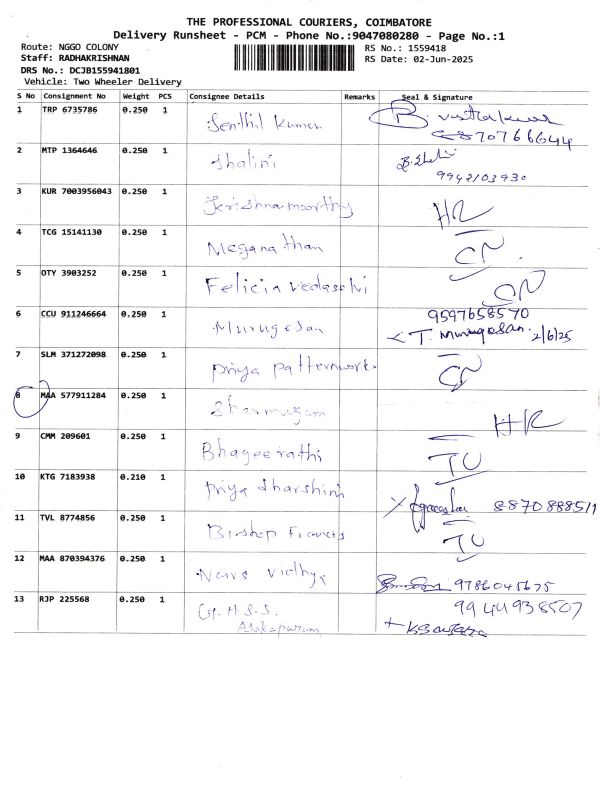 THE PROFESSIONAL COURIERS, COIMBATORE
Delivery Runsheet - PCM - Phone No.:9047080280 - Page No.:1
Route: NGGO COLONY
Staff: RADHAKRISHNAN
DRS No.: DCJB155941801
Vehicle: Two Wheeler Delivery
RS No.: 1559418
RS Date: 02-Jun-2025
S No Consignment No Weight PCS Consignee Details Remarks Seal & Signature
1 TRP 6735786 0.250 1 Senthil Kumar
8870766644
2 MTP 1364646 0.250 1 Shalini
9942103930
3 KUR 7003956043 0.250 1 Krishnamoorthy HR
4 TCG 15141130 0.250 1 Meganathan CN
5 OTY 3903252 0.250 1 Felicia CN
6 CCU 911246664 0.250 1 Murugesan 9597658570
T. Murugesan. 2/6/25
7 SLM 371272098 0.250 1 Priya CN
8 MAA 577911284 0.250 1 Shanmugam HR
9 CMM 209601 0.250 1 Bhageerathi TU
10 KTG 7183938 0.210 1 Priya dharshini
11 TVL 8774856 0.250 1 Bishop Francis TU
12 MAA 870394376 0.250 1 vidhya 9786045675
13 RJP 225568 0.250 1 G.H.S.S. 9944938507